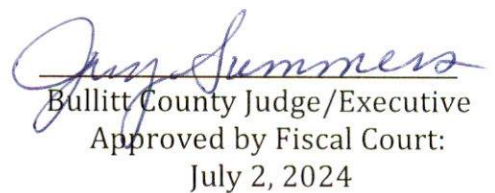 Jerry Summers
Bullitt County Judge/Executive
Approved by Fiscal Court:
July 2, 2024